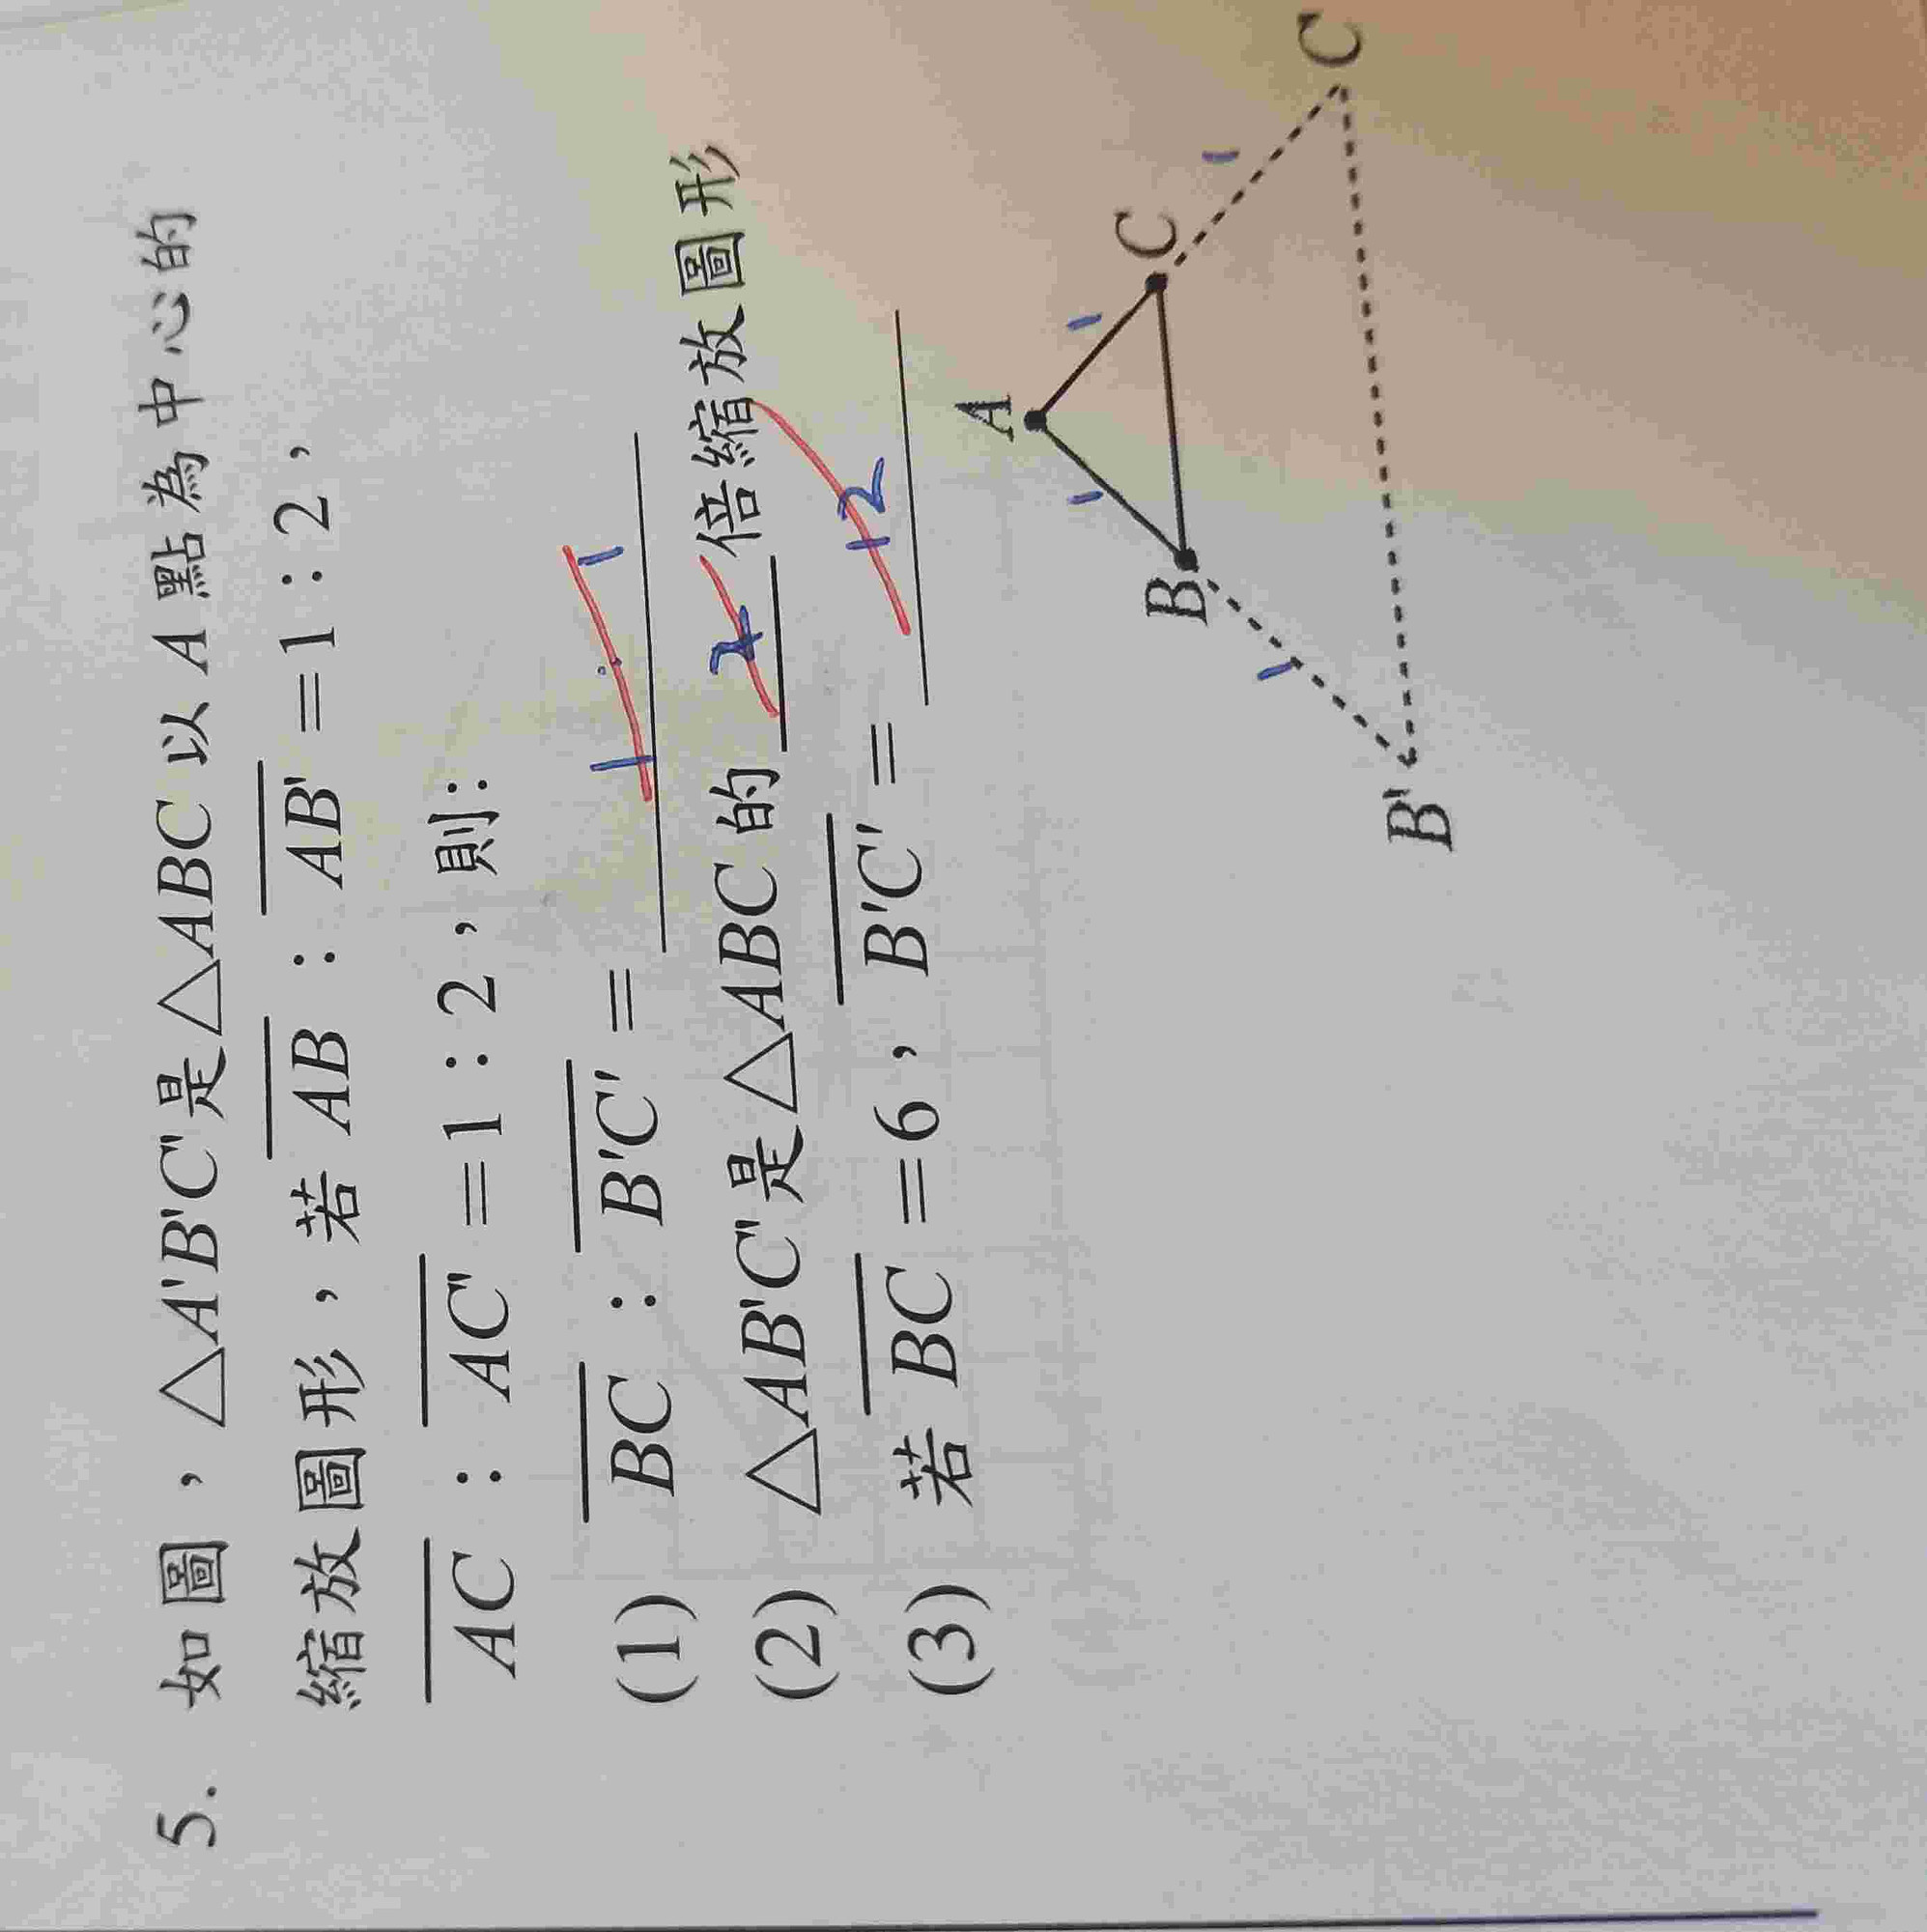 5. 如圖，△A'B'C'是△ABC 以 A 點為中心的
縮放圖形，若 AB：AB'=1：2，
AC：AC'=1：2，則：
(1) BC：B'C'= 1:1
(2) △AB'C'是△ABC 的 2 倍縮放圖形
(3) 若 BC=6，B'C'= 12
A
1 1
B C
1 1
B' C